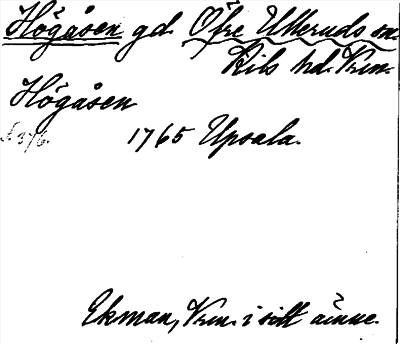 Högåsen gd. Öfre Ulleruds sn.
Kils hd. Vrm.
Högåsen
1765 Upsala.
Ekman, Vrm. i sitt ämne.